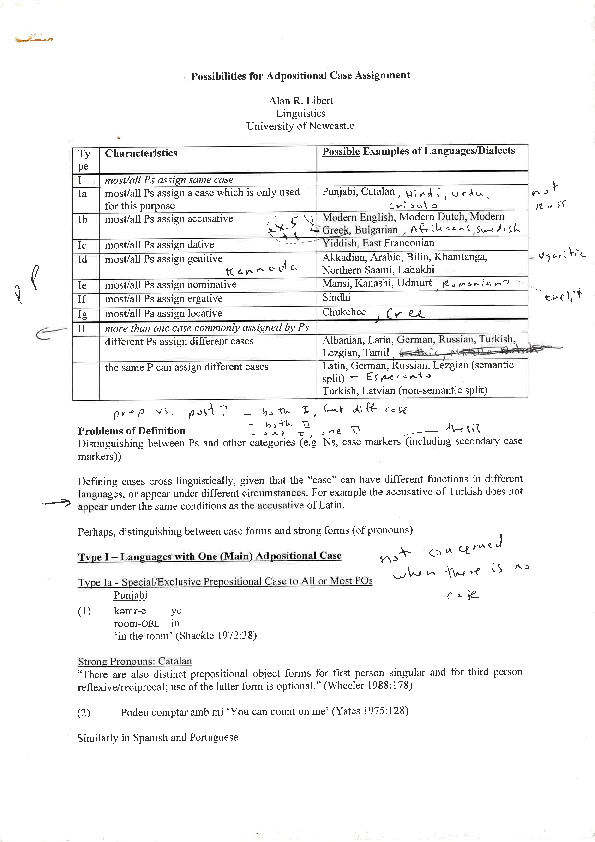 Possibilities for Adpositional Case Assignment
Alan R. Libert
Linguistics
University of Newcastle
Ty
pe
Characteristics
Possible Examples of Languages/Dialects
I
most/all Ps assign same case
Ia
most/all Ps assign a case which is only used
for this purpose
Punjabi, Catalan, Hindi, Urdu,
not
Ib
most/all Ps assign accusative
Modern English, Modern Dutch, Modern
Greek, Bulgarian, Afrikaans, Swedish
Ic
most/all Ps assign dative
Yiddish, East Franconian
Id
most/all Ps assign genitive
Kannada
Akkadian, Arabic, Bilin, Khamtanga,
Northern Saami, Ladakhi
- Ugaritic
Ie
most/all Ps assign nominative
Mansi, Kanashi, Udmurt, Romanian? -
If
most/all Ps assign ergative
Sindhi
Ig
most/all Ps assign locative
Chukchee, Cree
II
more than one case commonly assigned by Ps
different Ps assign different cases
Albanian, Latin, German, Russian, Turkish,
Lezgian, Tamil
the same P can assign different cases
Latin, German, Russian, Lezgian (semantic
split) - Esperanto
Turkish, Latvian (non-semantic split)
prep vs. post? - both I, but diff case
- both II
- one I, one II
Problems of Definition
Distinguishing between Ps and other categories (e.g. Ns, case markers (including secondary case
markers))
Defining cases cross linguistically, given that the "case" can have different functions in different
languages, or appear under different circumstances. For example the accusative of Turkish does not
appear under the same conditions as the accusative of Latin.
Perhaps, distinguishing between case forms and strong forms (of pronouns)
Type I – Languages with One (Main) Adpositional Case
not concerned
when there is no
case
Type Ia - Special/Exclusive Prepositional Case to All or Most POs
Punjabi
(1) kəmr-e yc
room-OBL in
'in the room' (Shackle 1972:38)
Strong Pronouns: Catalan
"There are also distinct prepositional object forms for first person singular and for third person
reflexive/reciprocal; use of the latter form is optional." (Wheeler 1988:178)
(2) Podeu comptar amb mi 'You can count on me' (Yates 1975:128)
Similarly in Spanish and Portuguese